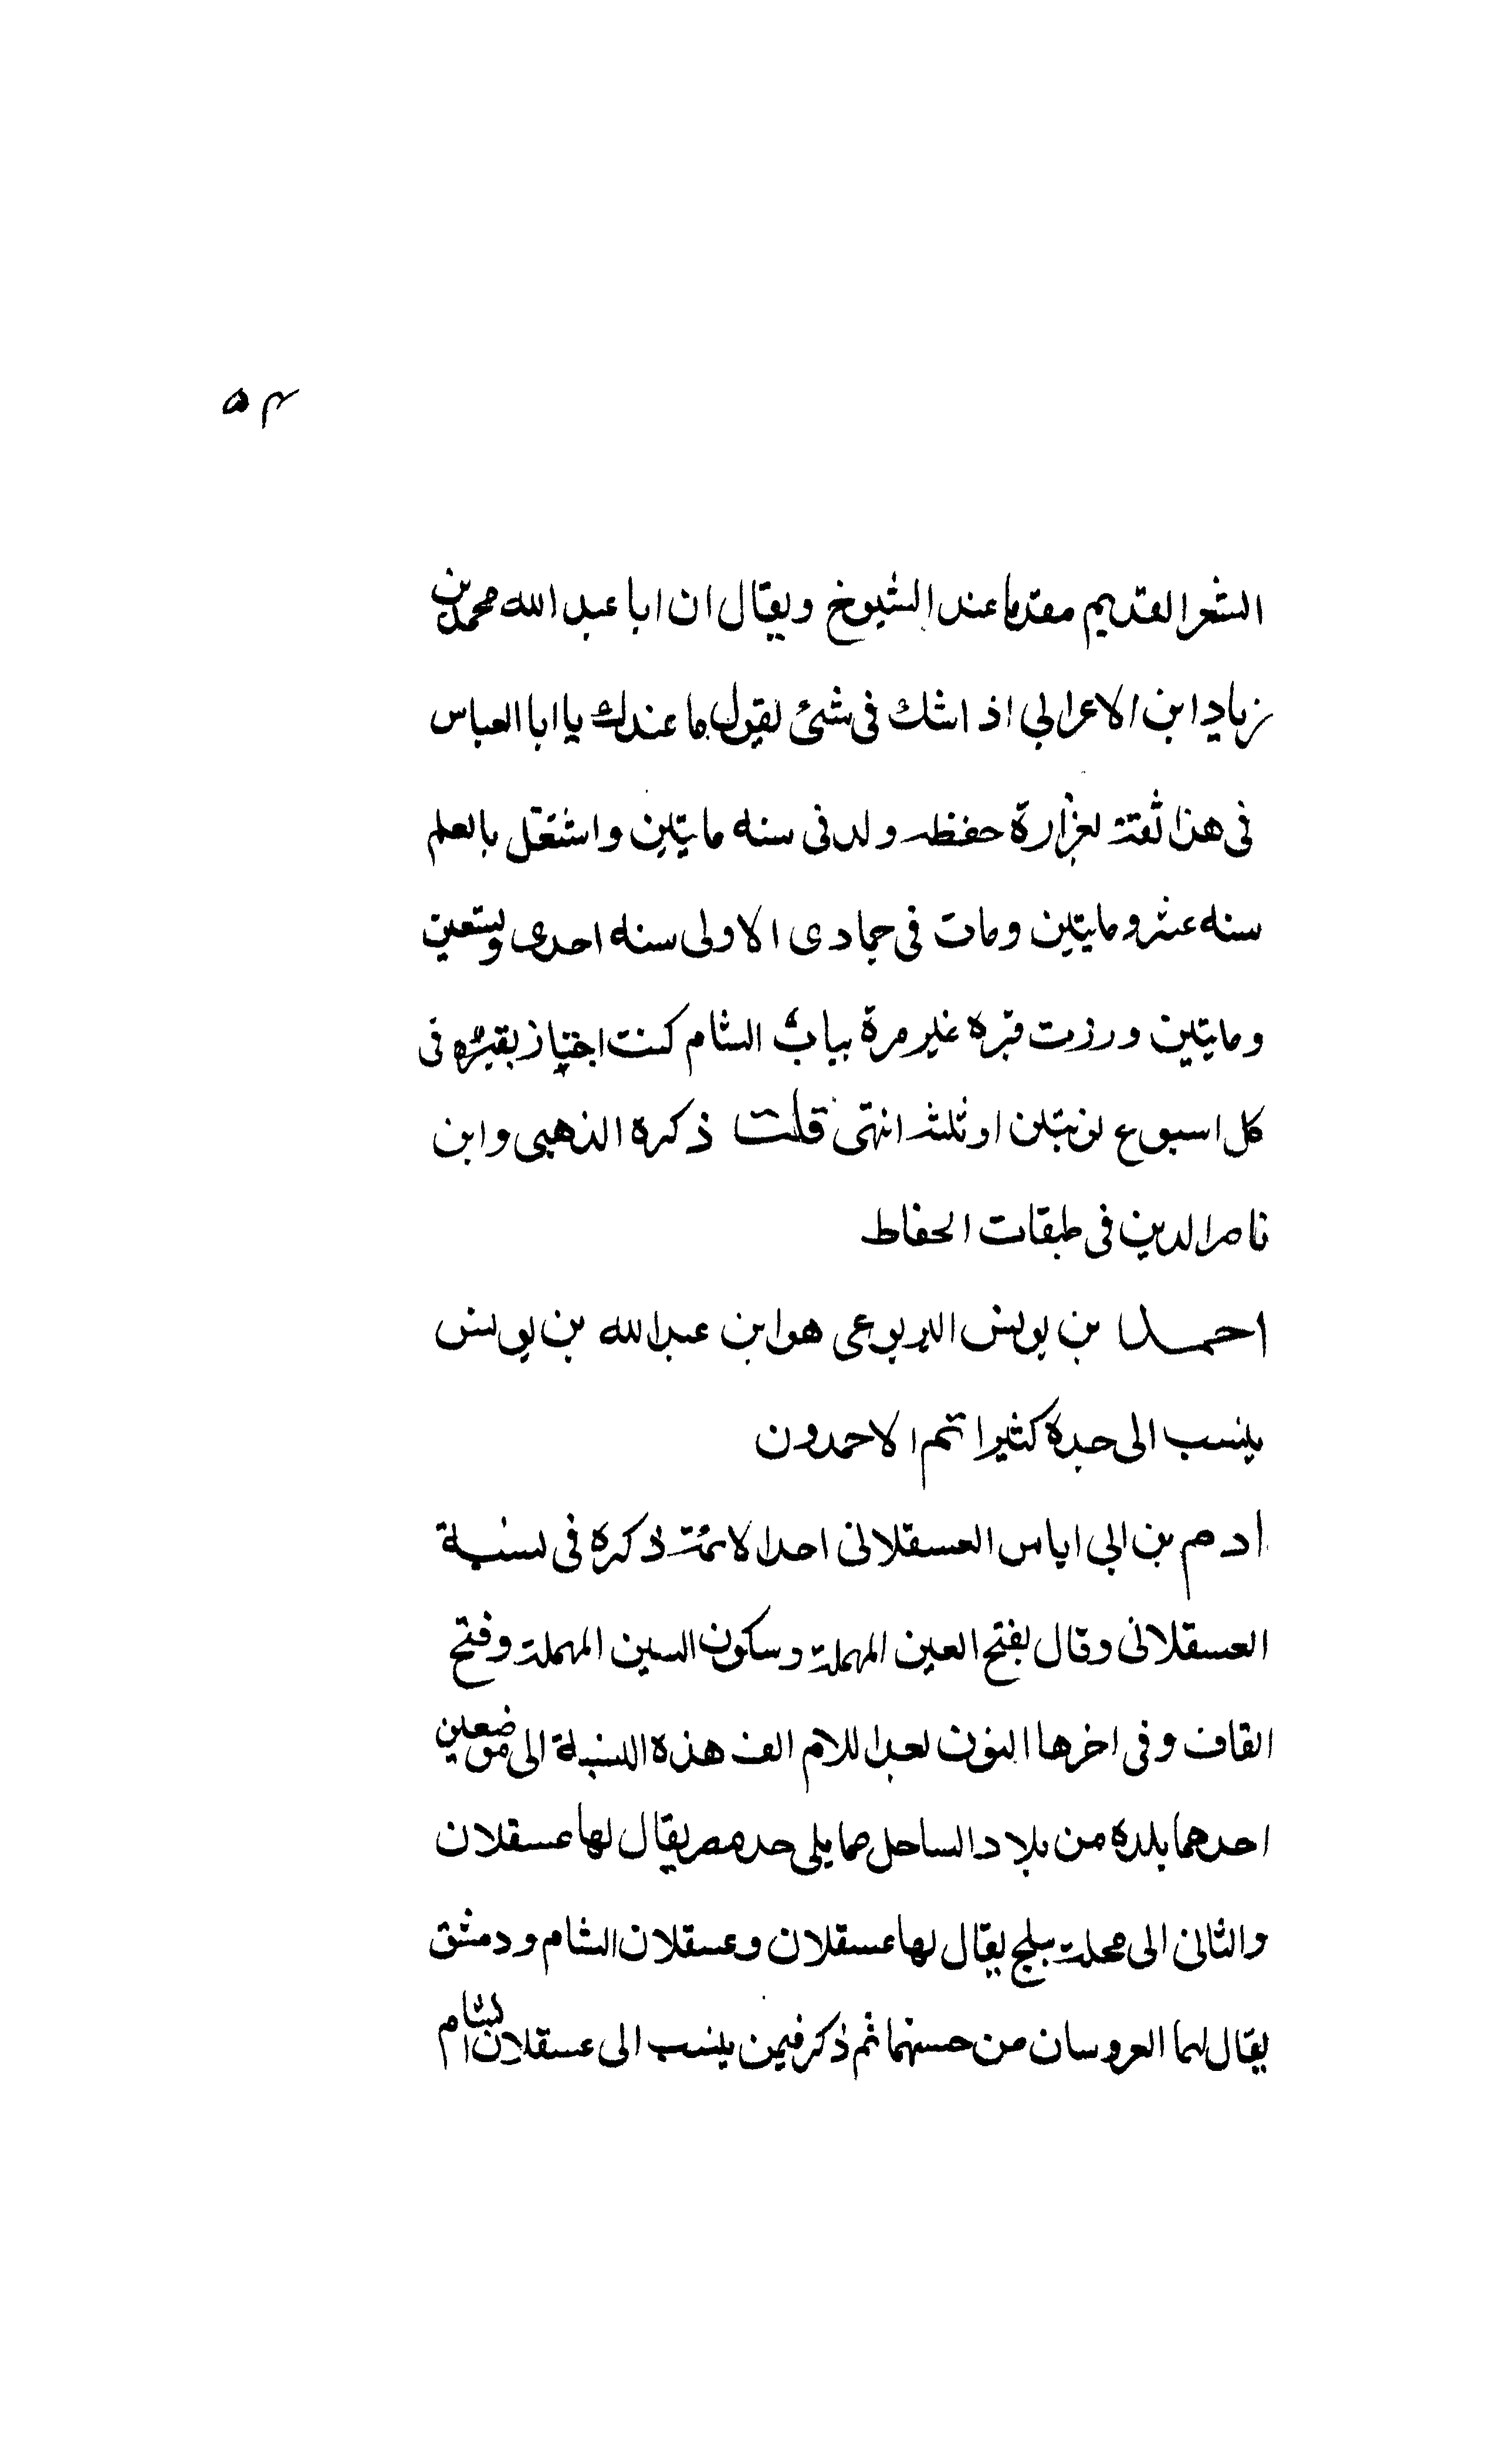 ۵۴
الشعر القديم مقدما عند الشيوخ ويقال ان ابا عبد الله محمد بن
زياد ابن الاعرابي اذ اشك فى شئ يقول ما عندك يا ابا العباس
فى هذا ثقتة لغزارة حفظه ولد فى سنه مايتين واشتغل بالعلم
سنه عشر ومايتين ومات فى جمادى الاولى سنه احدى وتسعين
ومايتين ورزت قبره غير مرة بباب الشام كنت اجتياز بقبره فى
كل اسبوع نوبتين او ثلثه انتهى قلت ذكره الذهبى وابن
ناصر الدين فى طبقات الحفاط
احمد بن يونس اليربوعى هو ابن عبد الله بن يونس
ينسب الى جده كثيرا تم الاحمدون
ادم بن ابي اياس العسقلانى احد الائمة ذكره فى نسبة
العسقلانى وقال بفتح العين المهملة وسكون السين المهملة وفتح
القاف وفى اخرها النون بعد اللام الف هذه النسبة الى موضعين
احدهما بلده من بلاد الساحل مما يلى حد مصر يقال لها عسقلان
والثانى الى محلة ببلخ يقال لها عسقلان وعسقلان الشام ودمشق
يقال لهما العروسان من حسنهما ثم ذكر فيمن ينسب الى عسقلان الشام